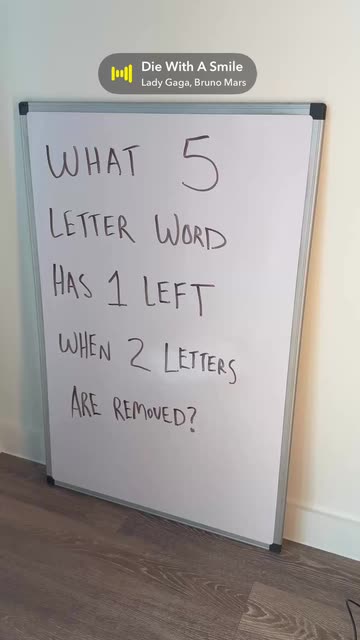 Die With A Smile
Lady Gaga, Bruno Mars
WHAT 5
LETTER WORD
HAS 1 LEFT
WHEN 2 LETTERS
ARE REMOVED?